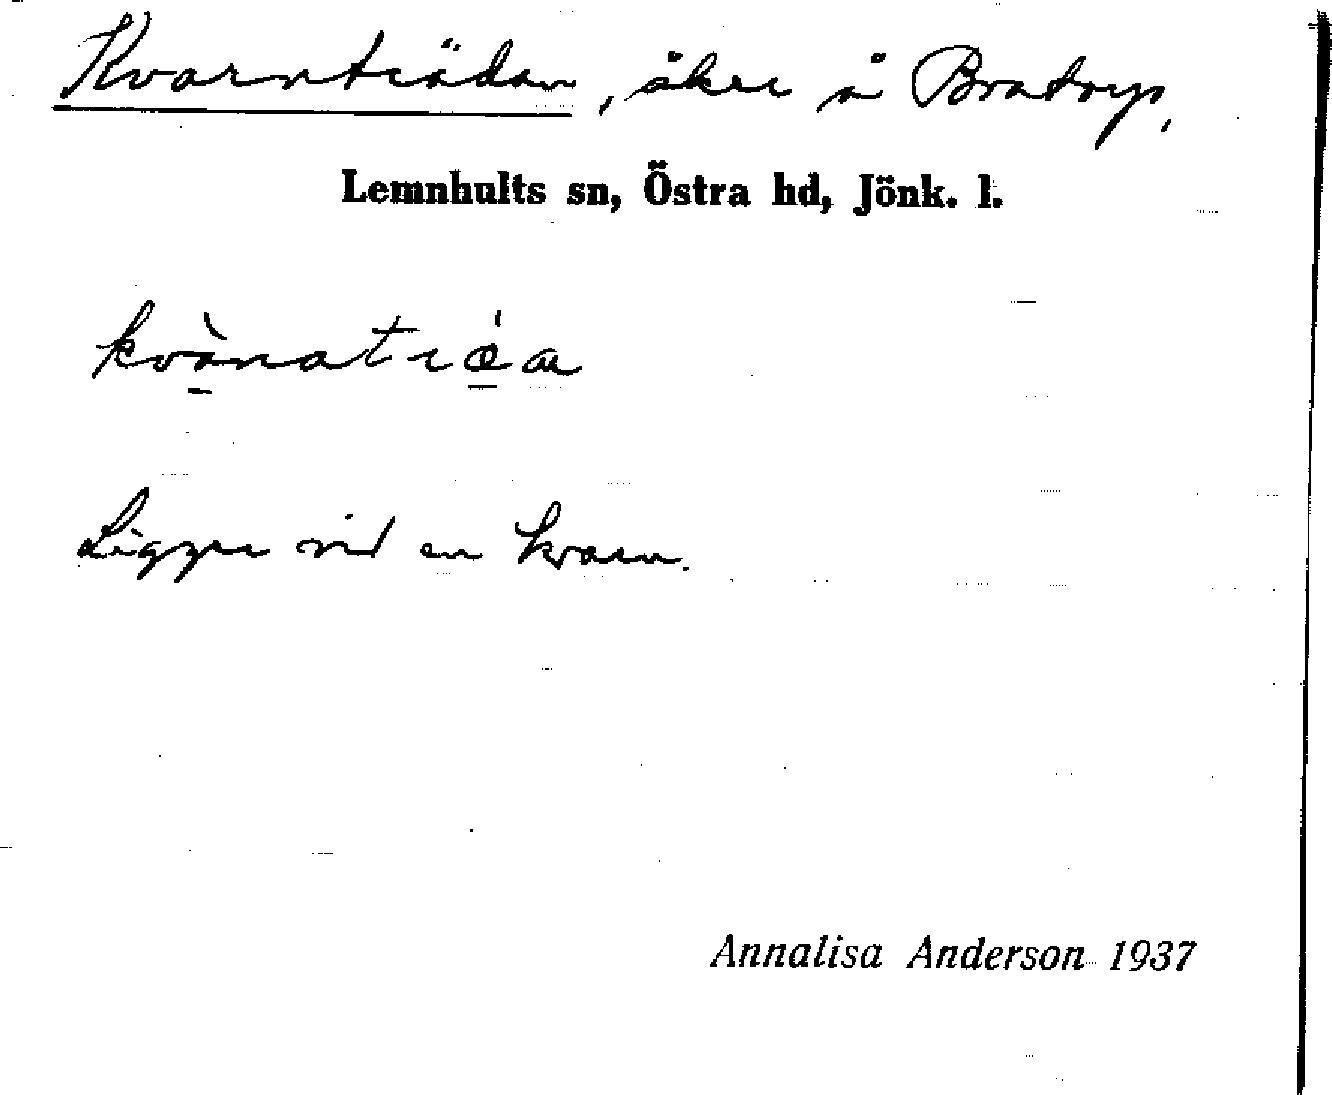 Kvarnträdan, åker å Bratorp,
Lemnhults sn, Östra hd, Jönk. l.
Ligger vid en kvarn.
Annalisa Anderson 1937